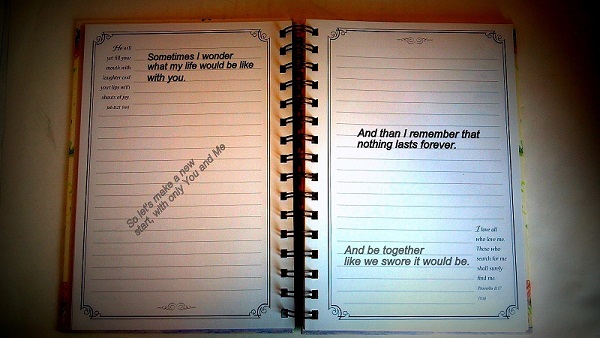 He will
yet fill your
mouth with
laughter and
your lips with
shouts of joy.
Sometimes I wonder
what my life would be like
with you.
So let's make a new
start, with only You and Me
And than I remember that
nothing lasts forever.
And be together
like we swore it would be.
I love all
who love me.
Those who
search for me
shall surely
find me.
Proverbs 8:17